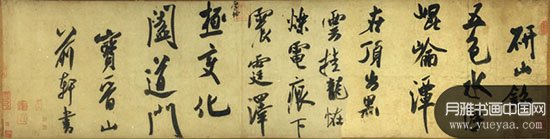 研山銘
五色水
崐崘潭
在頂出黒
雲挂龍怪
爍電痕下
震霆澤
極變化
闔道門
寶晉山
前軒書
月雅书画中国网
www.yueyaa.com